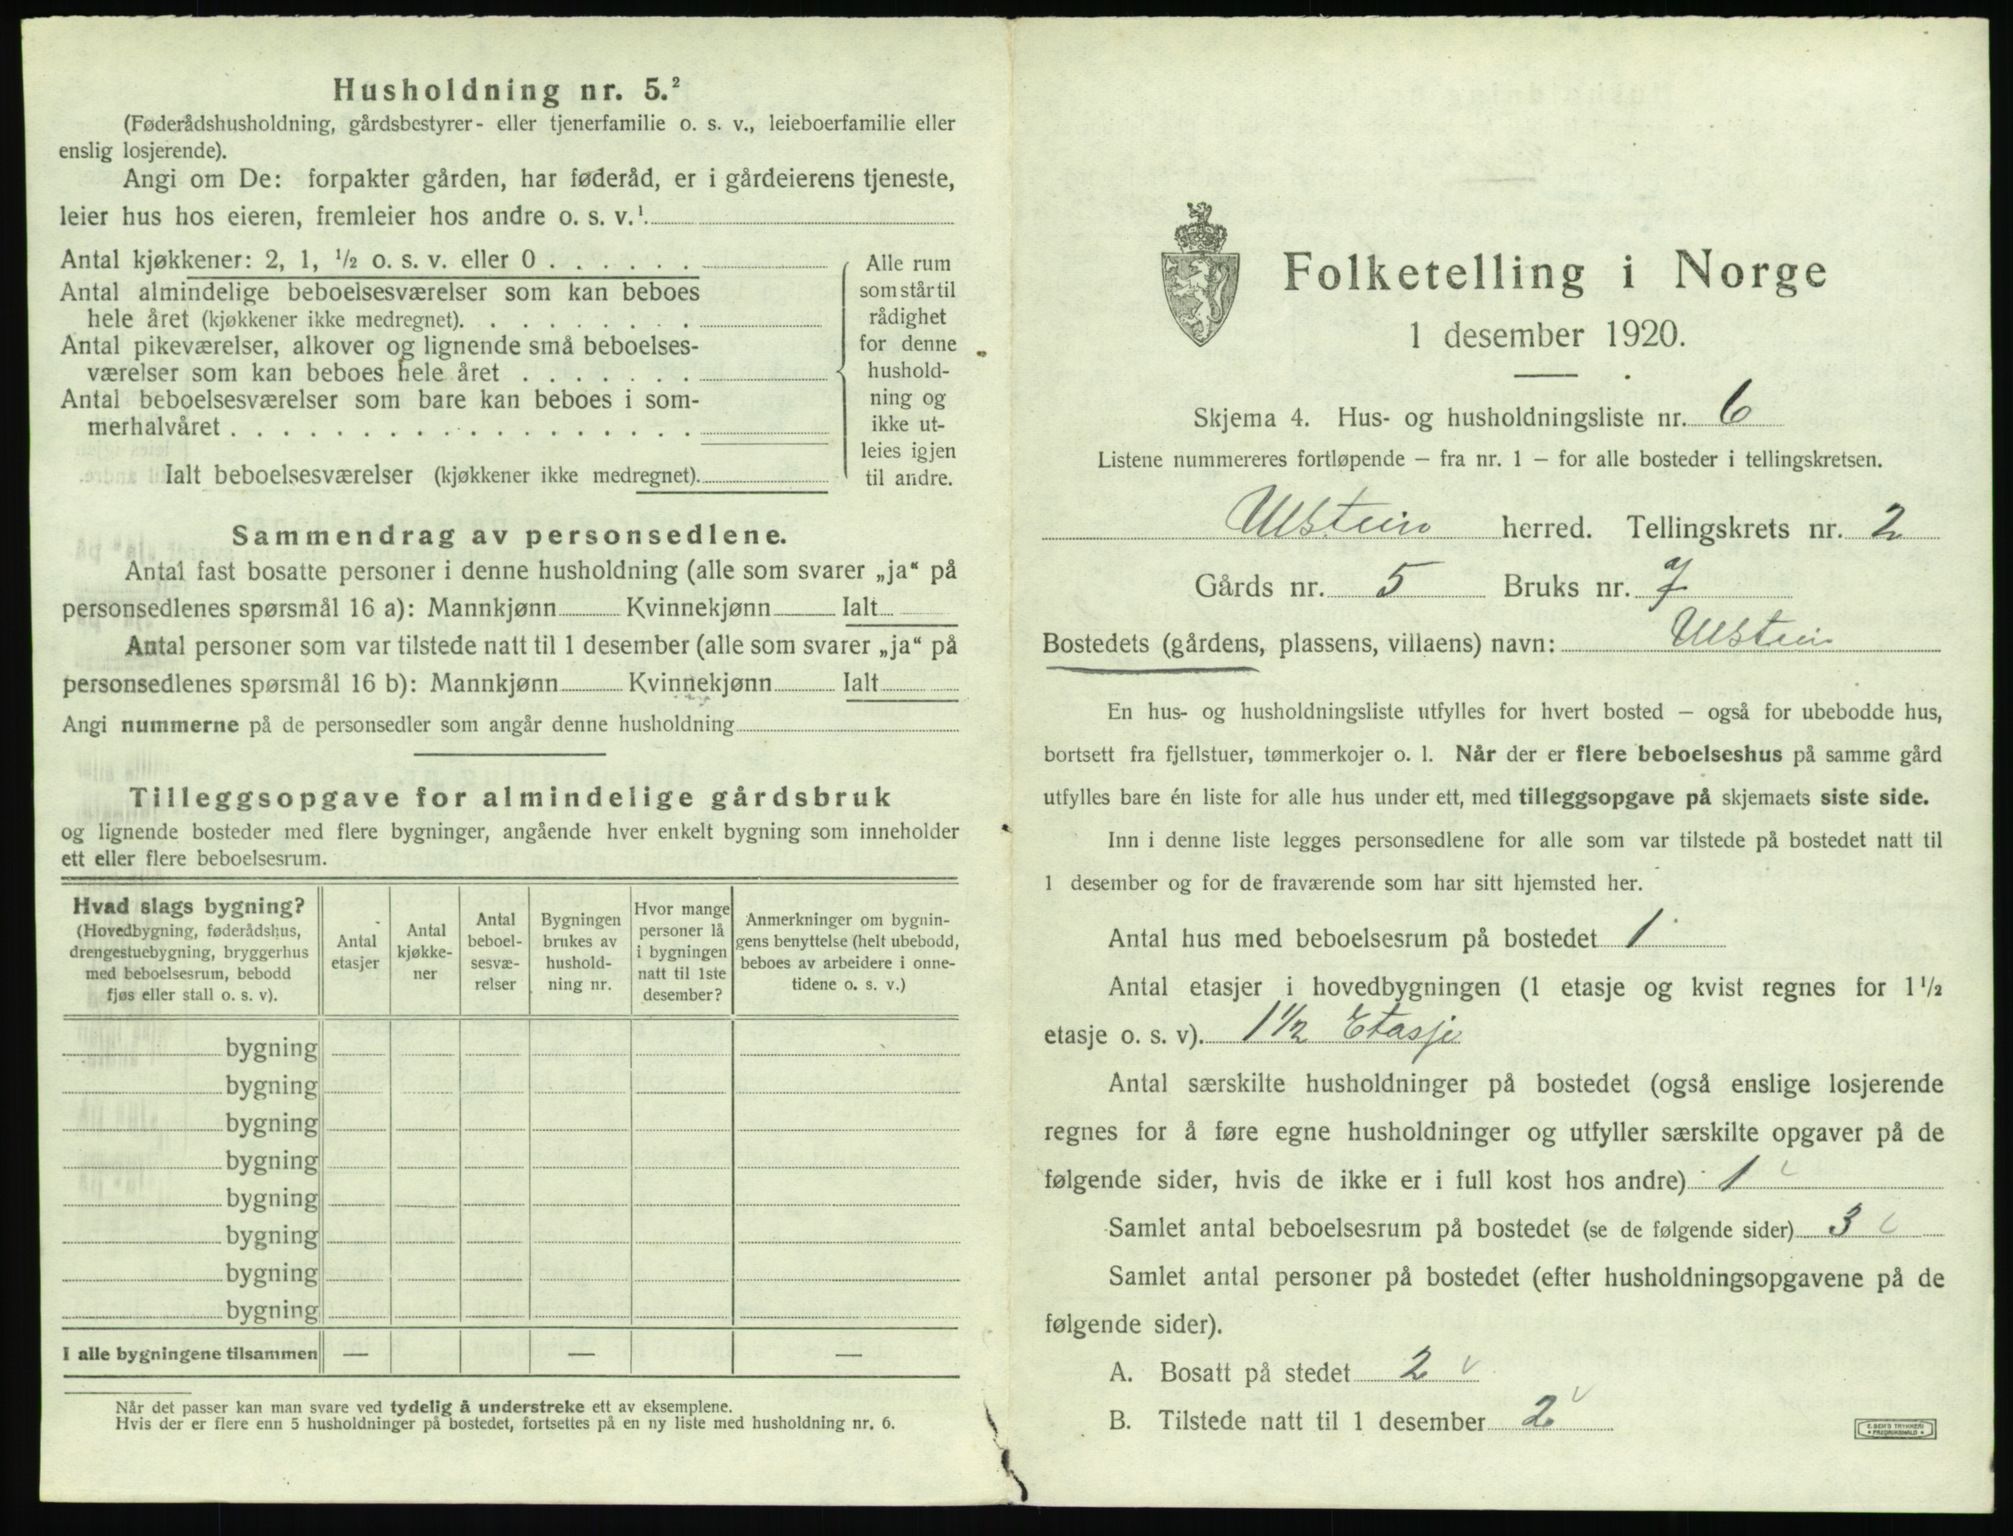 Husholdning nr. 5.²
(Føderådshusholdning, gårdsbestyrer- eller tjenerfamilie o. s. v., leieboerfamilie eller
enslig losjerende).
Angi om De: forpakter gården, har føderåd, er i gårdeierens tjeneste,
leier hus hos eieren, fremleier hos andre o. s. v.¹
Antal kjøkkener: 2, 1, ½ o. s. v. eller 0
Antal almindelige beboelsesværelser som kan beboes
hele året (kjøkkener ikke medregnet).
Antal pikeværelser, alkover og lignende små beboelses-
værelser som kan beboes hele året
Antal beboelsesværelser som bare kan beboes i som-
merhalvåret
Ialt beboelsesværelser (kjøkkener ikke medregnet).
Alle rum
som står til
rådighet
for denne
hushold-
ning og
ikke ut-
leies igjen
til andre.
Sammendrag av personsedlene.
Antal fast bosatte personer i denne husholdning (alle som svarer „ja“ på
personsedlenes spørsmål 16 a): Mannkjønn Kvinnekjønn Ialt
Antal personer som var tilstede natt til 1 desember (alle som svarer „ja“ på
personsedlenes spørsmål 16 b): Mannkjønn Kvinnekjønn Ialt
Angi nummerne på de personsedler som angår denne husholdning
Tilleggsopgave for almindelige gårdsbruk
og lignende bosteder med flere bygninger, angående hver enkelt bygning som inneholder
ett eller flere beboelsesrum.
Hvad slags bygning?
(Hovedbygning, føderådshus,
drengestuebygning, bryggerhus
med beboelsesrum, bebodd
fjøs eller stall o. s. v).
Antal
etasjer
Antal
kjøkke-
ner
Antal
beboel-
sesvæ-
relser
Bygningen
brukes av
hushold-
ning nr.
Hvor mange
personer lå
i bygningen
natt til 1ste
desember?
Anmerkninger om bygnin-
gens benyttelse (helt ubebodd,
beboes av arbeidere i onne-
tidene o. s. v.)
bygning
bygning
bygning
bygning
bygning
bygning
bygning
bygning
I alle bygningene tilsammen — — —
Når det passer kan man svare ved tydelig å understreke ett av eksemplene.
Hvis der er flere enn 5 husholdninger på bostedet, fortsettes på en ny liste med husholdning nr. 6.
Folketelling i Norge
1 desember 1920.
Skjema 4. Hus- og husholdningsliste nr. 6
Listene nummereres fortløpende – fra nr. 1 – for alle bosteder i tellingskretsen.
Ulstein herred. Tellingskrets nr. 2
Gårds nr. 5 Bruks nr. 7
Bostedets (gårdens, plassens, villaens) navn: Ulstein
En hus- og husholdningsliste utfylles for hvert bosted – også for ubebodde hus,
bortsett fra fjellstuer, tømmerkojer o. l. Når der er flere beboelseshus på samme gård
utfylles bare én liste for alle hus under ett, med tilleggsopgave på skjemaets siste side.
Inn i denne liste legges personsedlene for alle som var tilstede på bostedet natt til
1 desember og for de fraværende som har sitt hjemsted her.
Antal hus med beboelsesrum på bostedet 1
Antal etasjer i hovedbygningen (1 etasje og kvist regnes for 1½
etasje o. s. v). 1½ Etasje
Antal særskilte husholdninger på bostedet (også enslige losjerende
regnes for å føre egne husholdninger og utfyller særskilte opgaver på de
følgende sider, hvis de ikke er i full kost hos andre) 1
Samlet antal beboelsesrum på bostedet (se de følgende sider) 3
Samlet antal personer på bostedet (efter husholdningsopgavene på de
følgende sider).
A. Bosatt på stedet 2
B. Tilstede natt til 1 desember 2
E. SEM'S TRYKKERI
FREDRIKSHALD